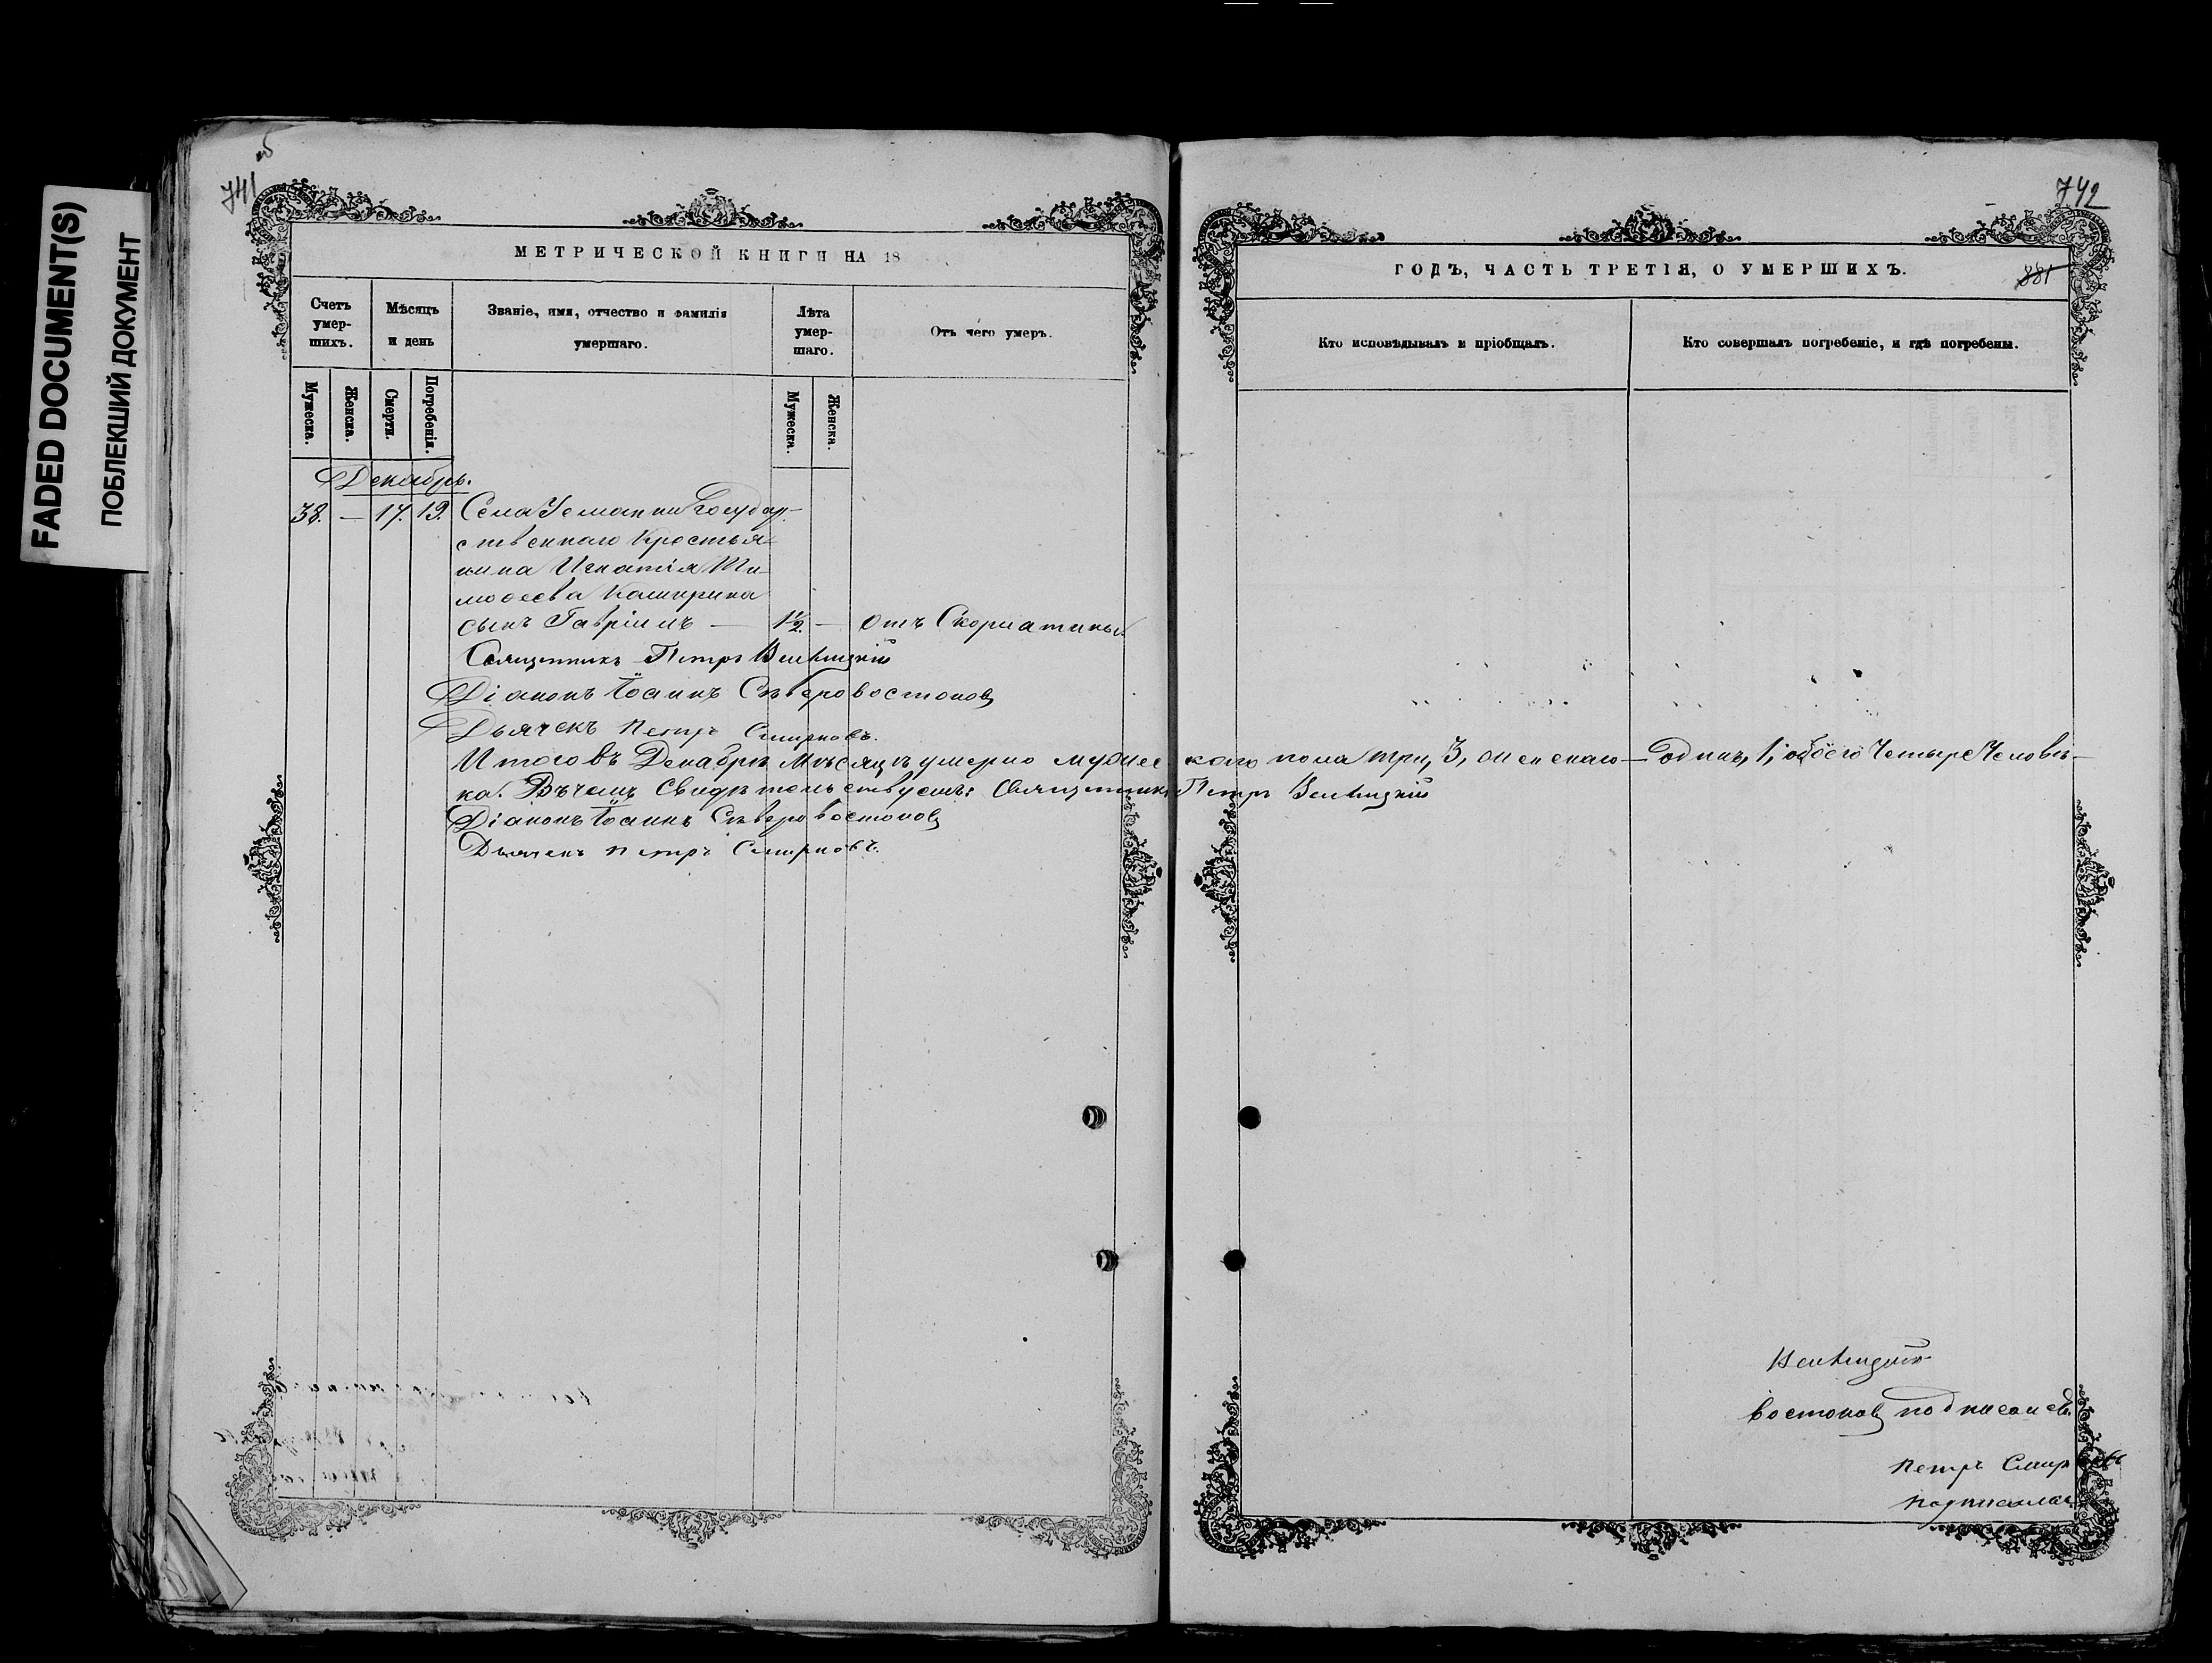 FADED DOCUMENT(S)
ПОБЛЕКШИЙ ДОКУМЕНТ
741
МЕТРИЧЕСКОЙ КНИГИ НА 18
Счетъ умер-шихъ.
Мѣсяцъ и день
Званіе, имя, отчество и фамилія умершаго.
Лѣта умер-шаго.
Отъ чего умеръ.
Мужеска.
Женска.
Смерти.
Погребенія.
Мужеска.
Женска.
Декабрь.
38. — 17. 19. Села Усмани Государ-
ственнаго Крестья-
нина Игнатія Ти-
моѳеева Каширина
сынъ Гавріилъ — 1½. — отъ Скорлатины
Священникъ Петръ
Діаконъ Іоаннъ Сѣверовостоковъ
Дьячекъ Петръ Смирновъ.
Итого въ Декабрѣ мѣсяцѣ умерло мужес кого пола три, 3, женскаго — одинъ, 1, обоего Четыре Человѣ-
ка. Въ чемъ Свидѣтельствуемъ: Священникъ Петръ
Діаконъ Іоаннъ Сѣверовостоковъ
Дьячекъ Петръ Смирновъ.
742
ГОДЪ, ЧАСТЬ ТРЕТІЯ, О УМЕРШИХЪ.
881
Кто исповѣдывалъ и пріобщалъ.
Кто совершалъ погребеніе, и гдѣ погребены.
востоковъ подписался.
Петръ Смирновъ
подписался